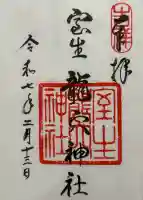 奉拝
室生龍穴神社
令和七年二月十三日
室生
龍穴
神社